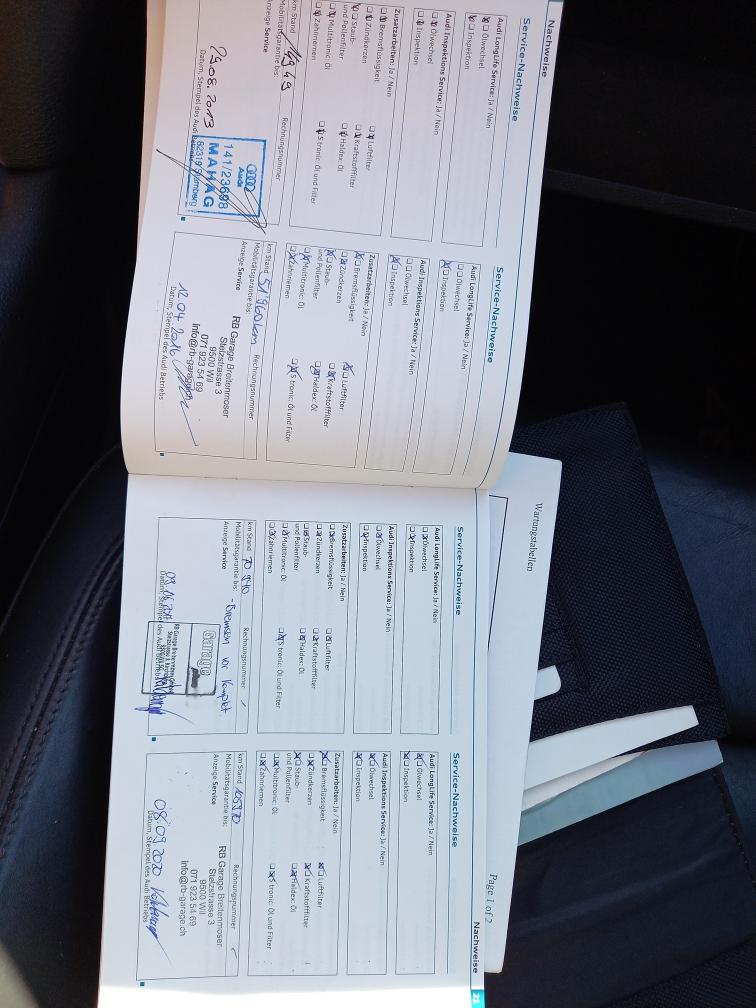 Nachweise
Service-Nachweise
Audi LongLife Service: Ja / Nein
Ölwechsel
Inspektion
Audi Inspektions Service: Ja / Nein
Ölwechsel
Inspektion
Zusatzarbeiten: Ja / Nein
Bremsflüssigkeit
Luftfilter
Zündkerzen
Kraftstofffilter
Staub-
und Pollenfilter
Haldex: Öl
Multitronic: Öl
S tronic: Öl und Filter
Zahnriemen
km Stand
Rechnungsnummer
Mobilitätsgarantie bis:
Anzeige Service
Audi
141/23698
MAHAG
82319 Starnberg
29.08.2013
Datum, Stempel des Audi Betriebs
Service-Nachweise
Audi LongLife Service: Ja / Nein
Ölwechsel
Inspektion
Audi Inspektions Service: Ja / Nein
Ölwechsel
Inspektion
Zusatzarbeiten: Ja / Nein
Bremsflüssigkeit
Luftfilter
Zündkerzen
Kraftstofffilter
Staub-
und Pollenfilter
Haldex: Öl
Multitronic: Öl
S tronic: Öl und Filter
Zahnriemen
km Stand 51'960 km
Rechnungsnummer
Mobilitätsgarantie bis:
Anzeige Service
RB Garage Breitenmoser
Stelzstrasse 3
9500 Wil
071 923 54 69
info@rb-garage.ch
12.04.2016
Datum, Stempel des Audi Betriebs
Service-Nachweise
Audi LongLife Service: Ja / Nein
Ölwechsel
Inspektion
Audi Inspektions Service: Ja / Nein
Ölwechsel
Inspektion
Zusatzarbeiten: Ja / Nein
Bremsflüssigkeit
Luftfilter
Zündkerzen
Kraftstofffilter
Staub-
und Pollenfilter
Haldex: Öl
Multitronic: Öl
S tronic: Öl und Filter
Zahnriemen
km Stand
Rechnungsnummer
Mobilitätsgarantie bis:
- Bremsen vor Komplet
Anzeige Service
Garage
Datum, Stempel des Audi Betriebs
Nachweise 21
Service-Nachweise
Audi LongLife Service: Ja / Nein
Ölwechsel
Inspektion
Audi Inspektions Service: Ja / Nein
Ölwechsel
Inspektion
Zusatzarbeiten: Ja / Nein
Bremsflüssigkeit
Luftfilter
Zündkerzen
Kraftstofffilter
Staub-
und Pollenfilter
Haldex: Öl
Multitronic: Öl
S tronic: Öl und Filter
Zahnriemen
km Stand
Rechnungsnummer
Mobilitätsgarantie bis:
Anzeige Service
RB Garage Breitenmoser
Stelzstrasse 3
9500 Wil
071 923 54 69
info@rb-garage.ch
08.09.2020
Datum, Stempel des Audi Betriebs
Wartungstabellen
Page 1 of 2